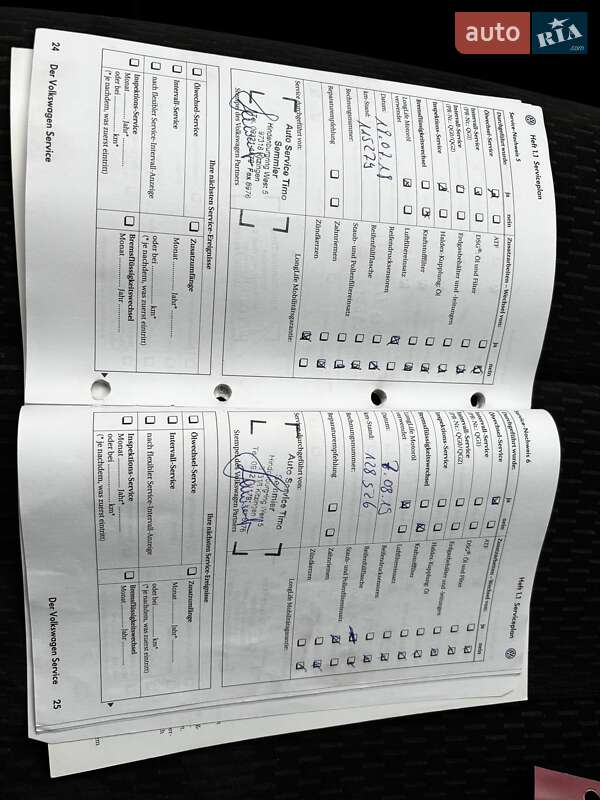 auto
RIA
.com
Heft 1.1 Serviceplan
Service-Nachweis 5
Durchgeführt wurde:
ja
nein
Ölwechsel-Service
Intervall-Service
(PR-Nr.: QG1)
Intervall-Service
(PR-Nr.: QG0/QG2)
Inspektions-Service
Bremsflüssigkeitswechsel
LongLife Motoröl
verwendet
Datum: 19.02.19
km-Stand: 115279
Rechnungsnummer:
Reparaturempfehlung
Zusatzarbeiten – Wechsel von:
ja
nein
ATF
DSG®, Öl und Filter
Erdgasbehälter und -leitungen
Haldex-Kupplung: Öl
Kraftstofffilter
Luftfiltereinsatz
Reifendrucksensoren
Reifenfüllflasche
Staub- und Pollenfiltereinsatz
Zahnriemen
Zündkerzen
LongLife Mobilitätsgarantie:
Service durchgeführt von:
Auto Service Timo
Semmler
Hindenburgring West 5
97318 Kitzingen
Stempel des Volkswagen Partners
Ihre nächsten Service-Ereignisse
Ölwechsel-Service
Intervall-Service
nach flexibler Service-Intervall-Anzeige
Inspektions-Service
Monat Jahr*
oder bei km*
(* je nachdem, was zuerst eintritt)
Zusatzumfänge
Monat Jahr*
oder bei km*
(* je nachdem, was zuerst eintritt)
Bremsflüssigkeitswechsel
Monat Jahr
24 Der Volkswagen Service
Heft 1.1 Serviceplan
Service-Nachweis 6
Durchgeführt wurde:
ja
nein
Ölwechsel-Service
Intervall-Service
(PR-Nr.: QG1)
Intervall-Service
(PR-Nr.: QG0/QG2)
Inspektions-Service
Bremsflüssigkeitswechsel
LongLife Motoröl
verwendet
Datum: 08.19
km-Stand: 128526
Rechnungsnummer:
Reparaturempfehlung
Zusatzarbeiten – Wechsel von:
ja
nein
ATF
DSG®, Öl und Filter
Erdgasbehälter und -leitungen
Haldex-Kupplung: Öl
Kraftstofffilter
Luftfiltereinsatz
Reifendrucksensoren
Reifenfüllflasche
Staub- und Pollenfiltereinsatz
Zahnriemen
Zündkerzen
LongLife Mobilitätsgarantie:
Service durchgeführt von:
Auto Service Timo
Semmler
Hindenburgring West 5
Stempel des Volkswagen Partners
Ihre nächsten Service-Ereignisse
Ölwechsel-Service
Intervall-Service
nach flexibler Service-Intervall-Anzeige
Inspektions-Service
Monat Jahr*
oder bei km*
(* je nachdem, was zuerst eintritt)
Zusatzumfänge
Monat Jahr*
oder bei km*
(* je nachdem, was zuerst eintritt)
Bremsflüssigkeitswechsel
Monat Jahr
Der Volkswagen Service 25